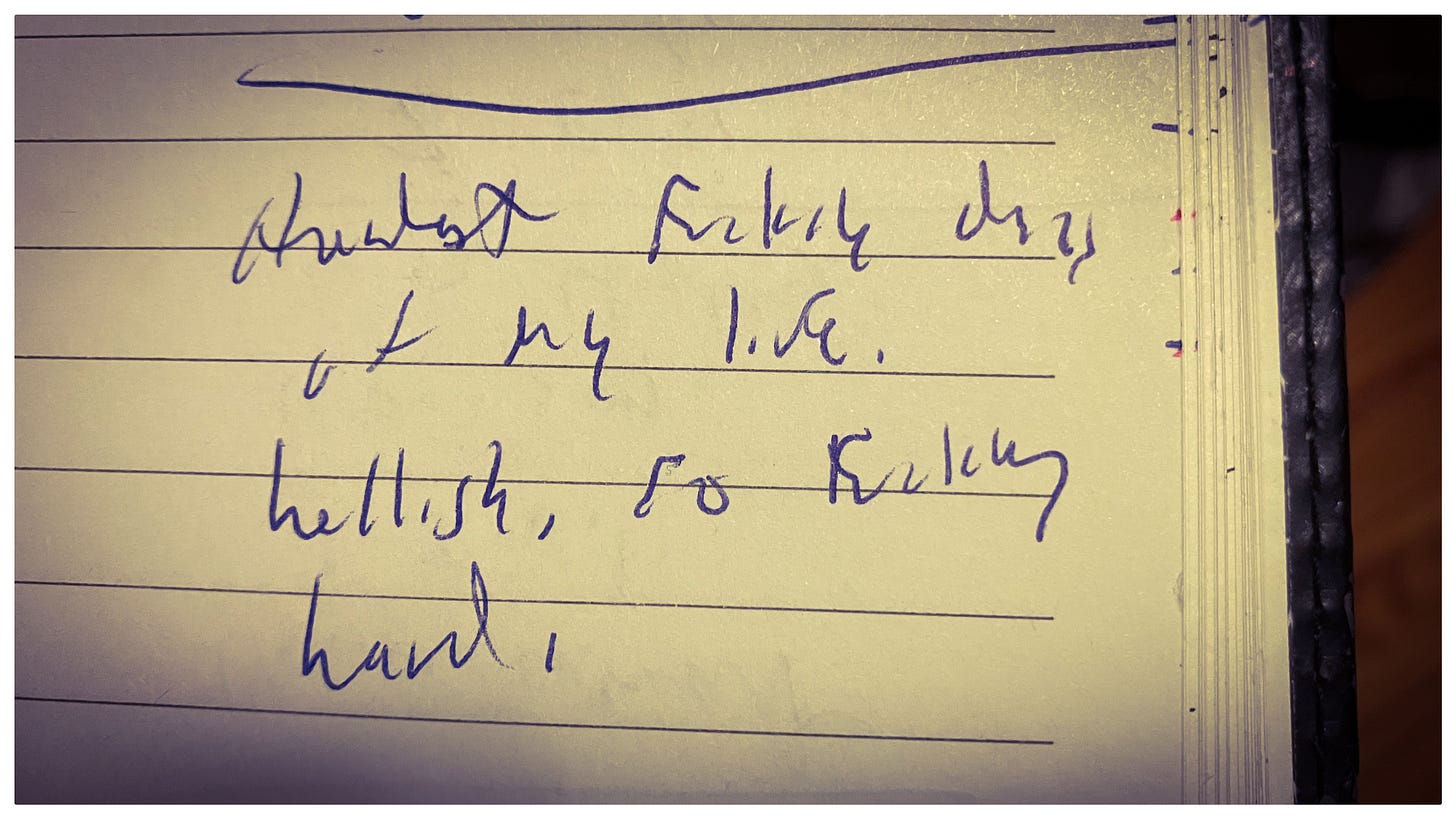 Hardest Fucking days
of my life.
hellish, so Fucking
hard.